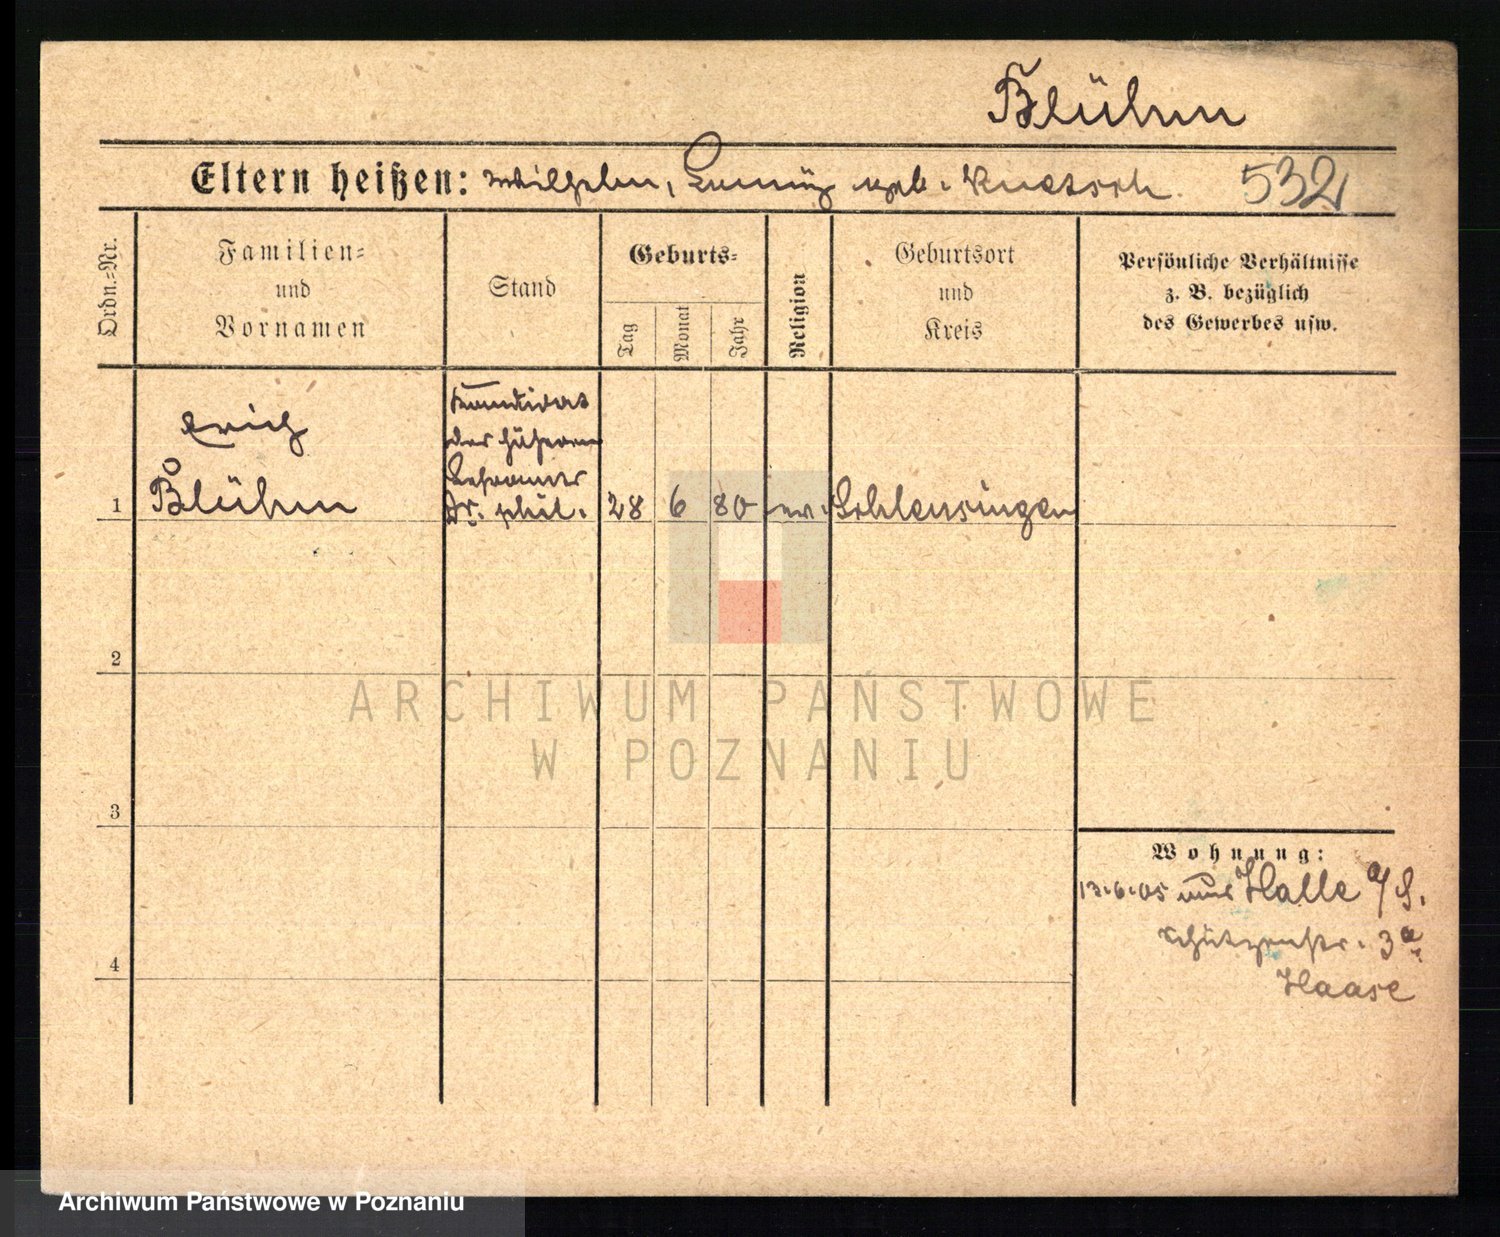 Blühm
Eltern heißen: Wilhelm, geb. Kuetsch.
532
Ordn.=Nr.
Familien=
und
Vornamen
Stand
Geburts=
Tag
Monat
Jahr
Religion
Geburtsort
und
Kreis
Persönliche Verhältnisse
z. B. bezüglich
des Gewerbes usw.
1
Erich
Blühm
Kandidat
des höheren
Lehramts
Dr. phil.
28
6
80
ev.
Schleusingen
2
3
4
Wohnung:
13.6.05 aus Halle a/S.
Schützenstr. 3a
Haase
ARCHIWUM PAŃSTWOWE
W POZNANIU
Archiwum Państwowe w Poznaniu